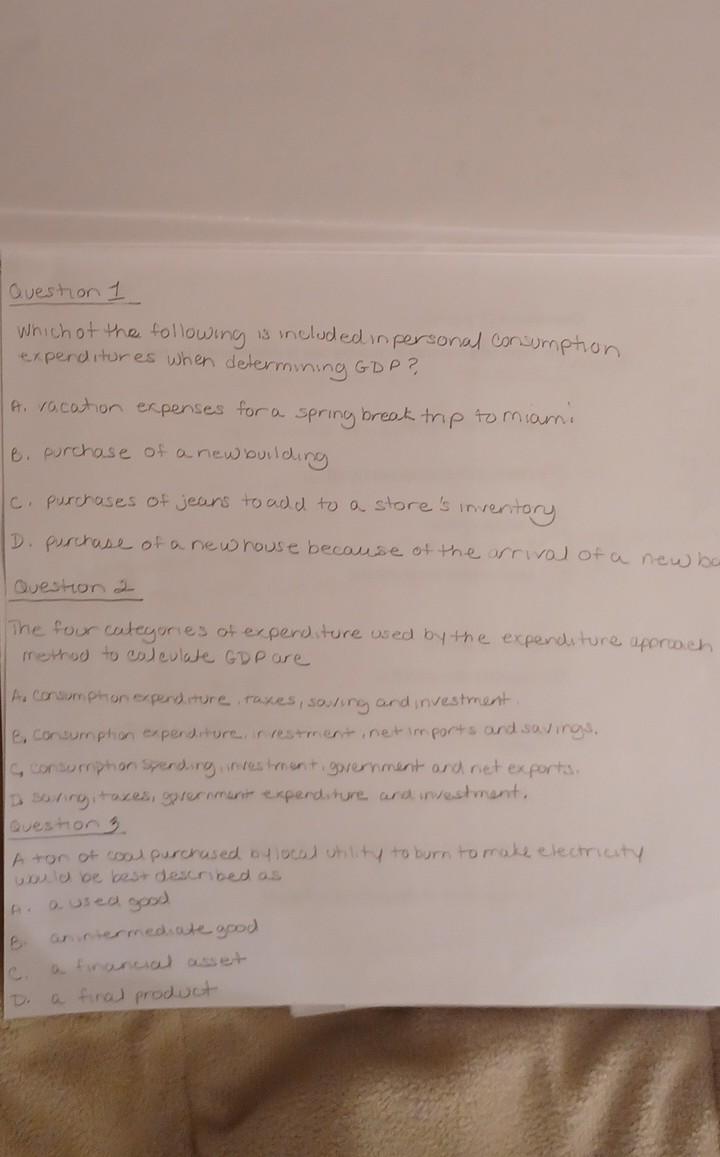 Question 1
Which of the following is included in personal consumption
expenditures when determining GDP?
A. vacation expenses for a spring break trip to miami
B. purchase of a new building
C. purchases of jeans to add to a store's inventory
D. purchase of a new house because of the arrival of a new ba
Question 2
The four categories of expenditure used by the expenditure approach
method to calculate GDP are
A. Consumption expenditure, taxes, saving and investment.
B. Consumption expenditure, investment, net imports and savings.
C. consumption spending, investment, government and net exports.
D. saving, taxes, government expenditure and investment.
Question 3
A ton of coal purchased by local utility to burn to make electricity
would be best described as
A. a used good
B. an intermediate good
C. a financial asset
D. a final product